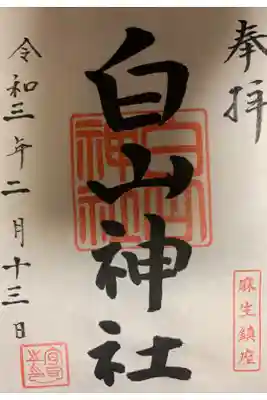 奉拝
麻生鎮座
白山神社
白山神社
令和三年二月十三日